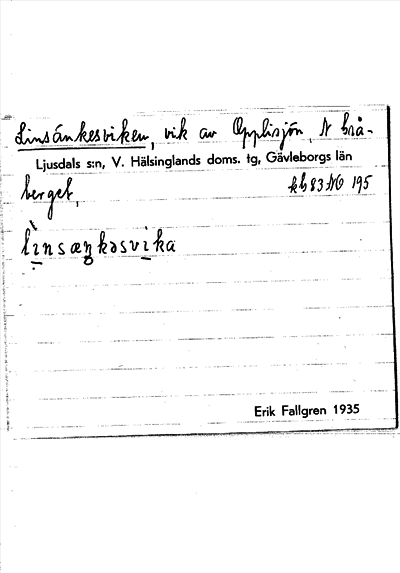 Linsänkesviken, vik av Opplisjön, N Brå-
Ljusdals s:n, V. Hälsinglands doms. tg, Gävleborgs län
berget,
kb 83 NO 195
linsæŋkəsvika
Erik Fallgren 1935